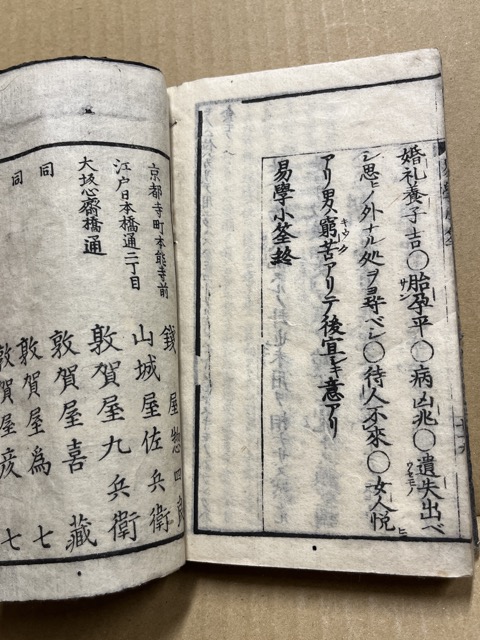 婚礼養子吉○胎孕平○病凶兆○遺失出ベ
シ思ヒノ外ナル処ヲ尋ベシ○待人不來○女人悦
アリ男ハ窮苦アリテ後宜シキ意アリ
易學小筌終
京都寺町本能寺前
江戸日本橋通二丁目 山城屋佐兵衛
大坂心齋橋通 敦賀屋九兵衛
同 敦賀屋喜藏
同 敦賀屋為七
敦賀屋彦七